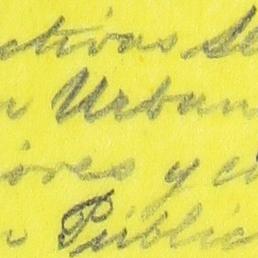 ctivas Se
n Urban
iores y c
n Públic